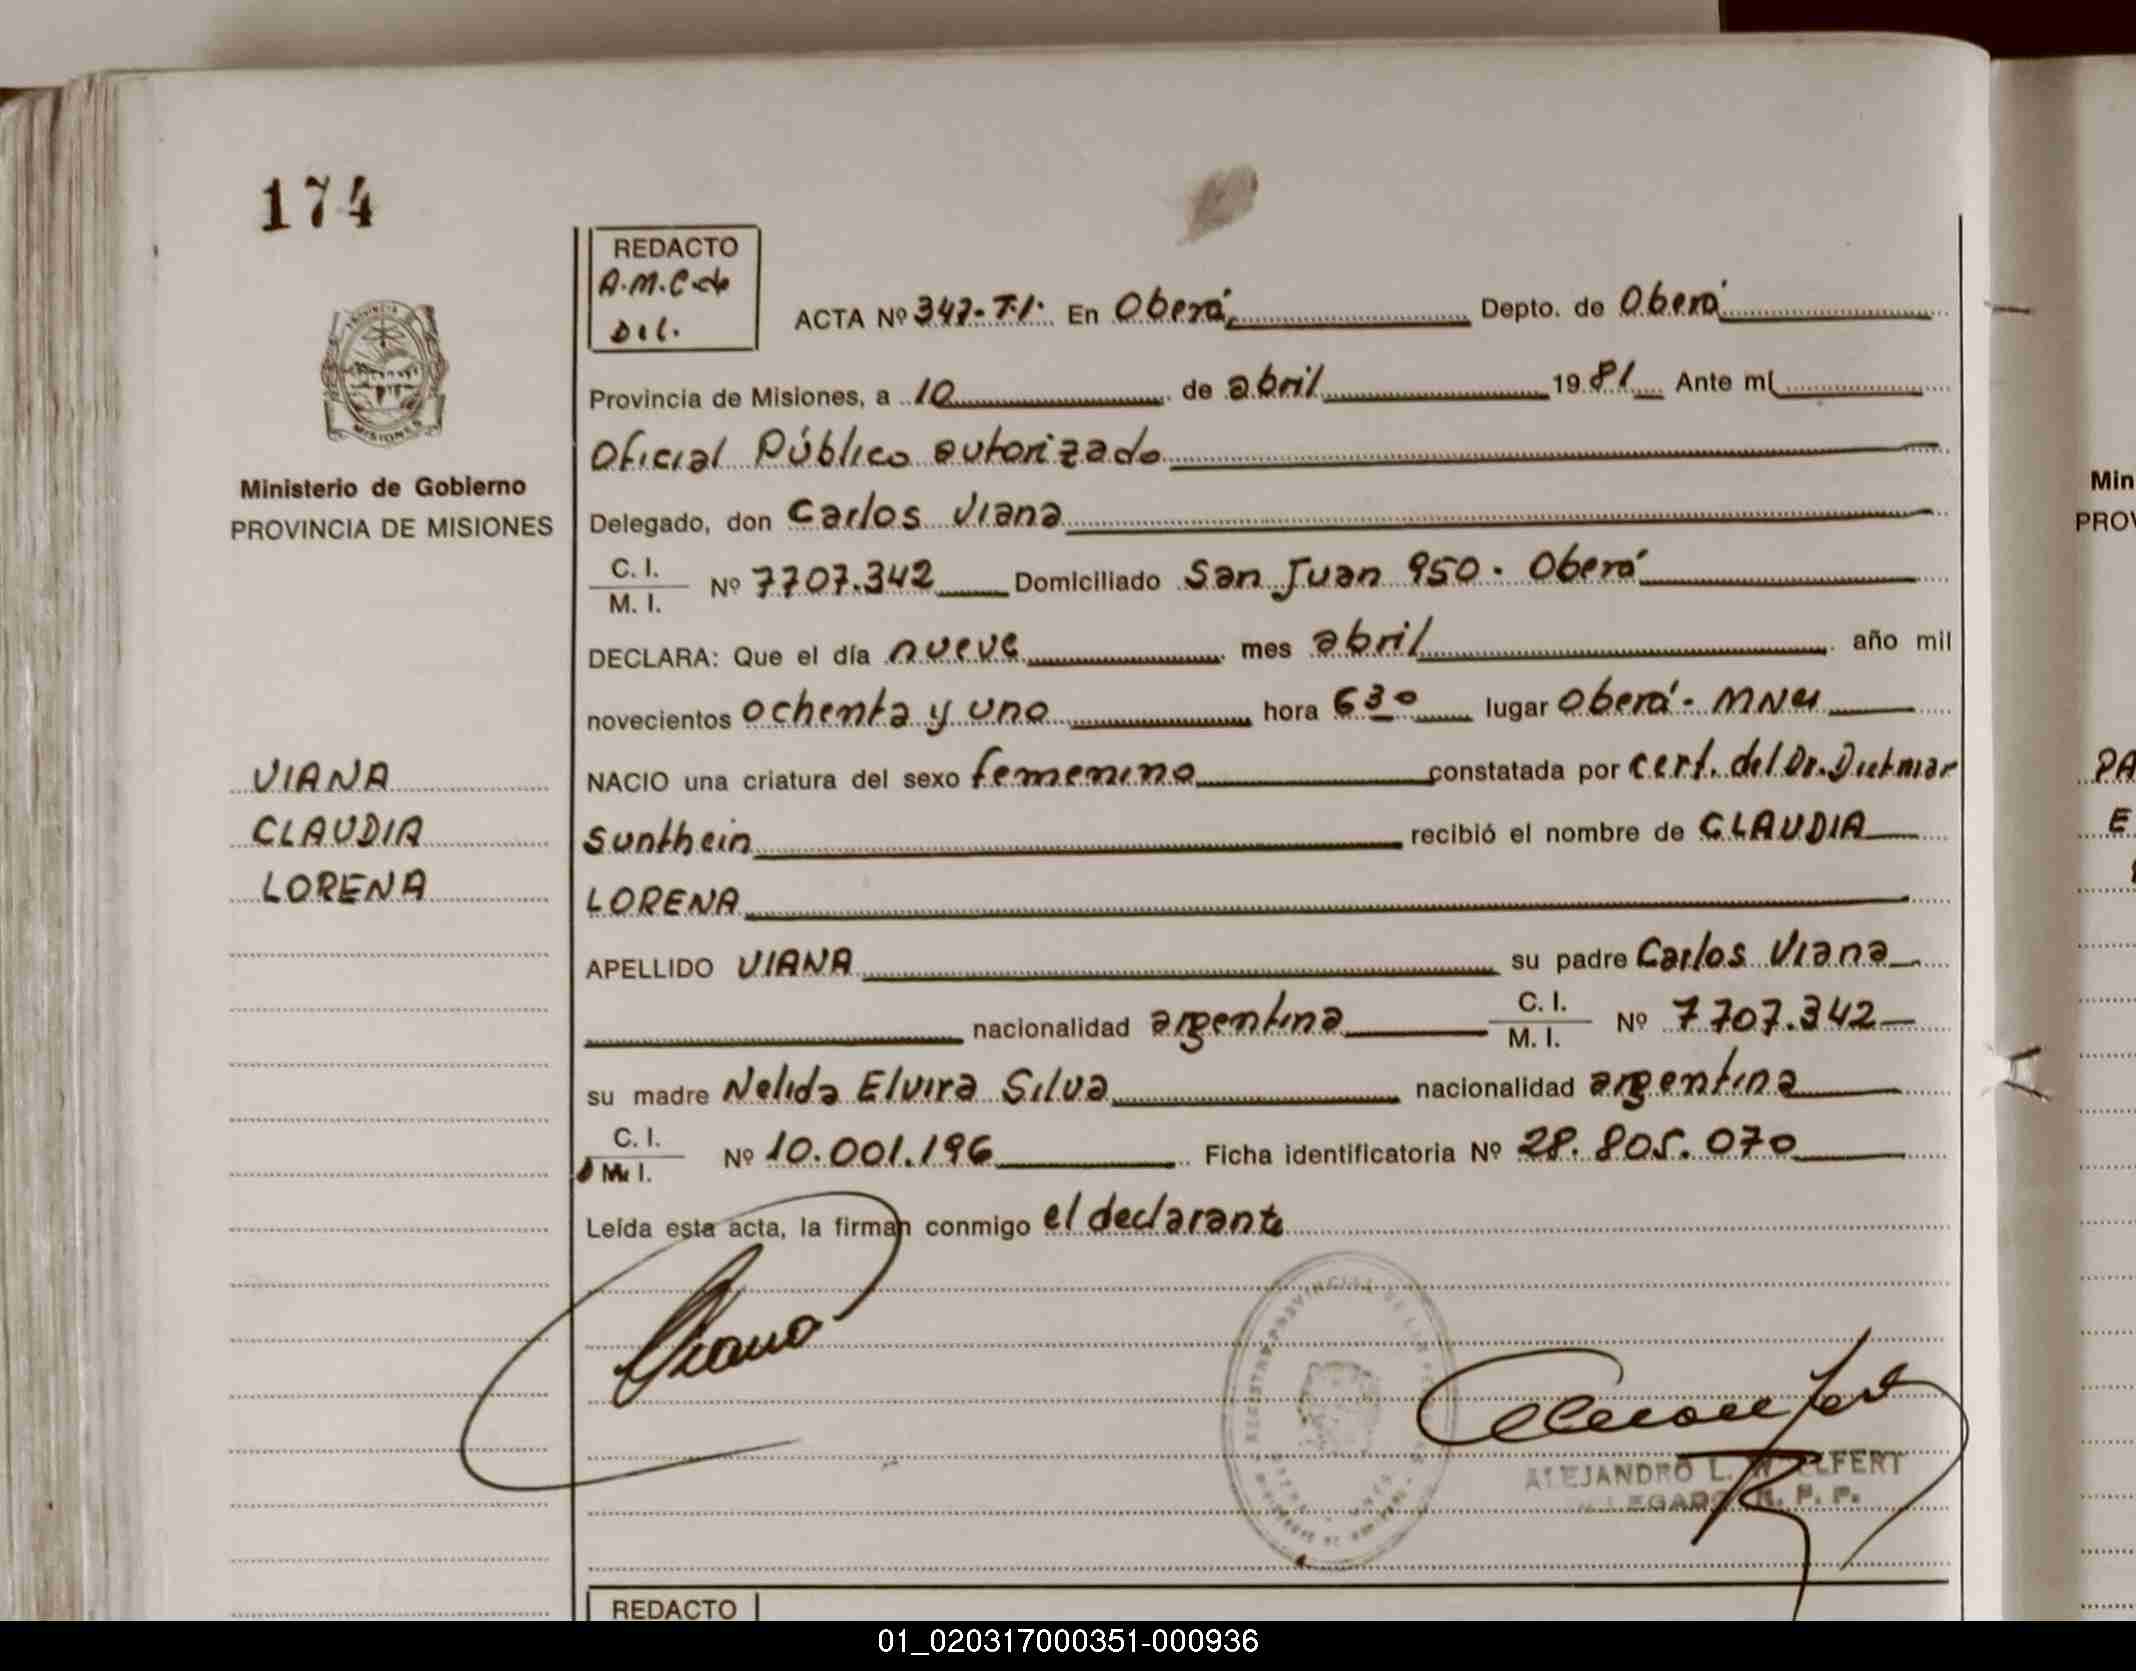 174
REDACTO
A.M.C. de
Del.
ACTA Nº 347-T.I. En Oberá, Depto. de Oberá
Provincia de Misiones, a 10 de abril 1981 Ante mí
Oficial Público autorizado
Ministerio de Gobierno
PROVINCIA DE MISIONES
Delegado, don Carlos Viana
C. I.
M. I. Nº 7707.342 Domiciliado San Juan 950. Oberá
DECLARA: Que el día nueve mes abril año mil
novecientos ochenta y uno hora 6 30 lugar Oberá - MNES
VIANA
CLAUDIA
LORENA
NACIO una criatura del sexo femenino constatada por cert. del Dr. Dietmar
Sunthein recibió el nombre de CLAUDIA
LORENA
APELLIDO VIANA su padre Carlos Viana
nacionalidad argentina C. I.
M. I. Nº 7707.342
su madre Nelida Elvira Silva nacionalidad argentina
C. I.
M. I. Nº 10.001.196 Ficha identificatoria Nº 28.805.070
Leída esta acta, la firman conmigo el declarante
Viana
ALEJANDRO L.
R. P. P.
REDACTO
Min
PROV
PA
E
01_020317000351-000936